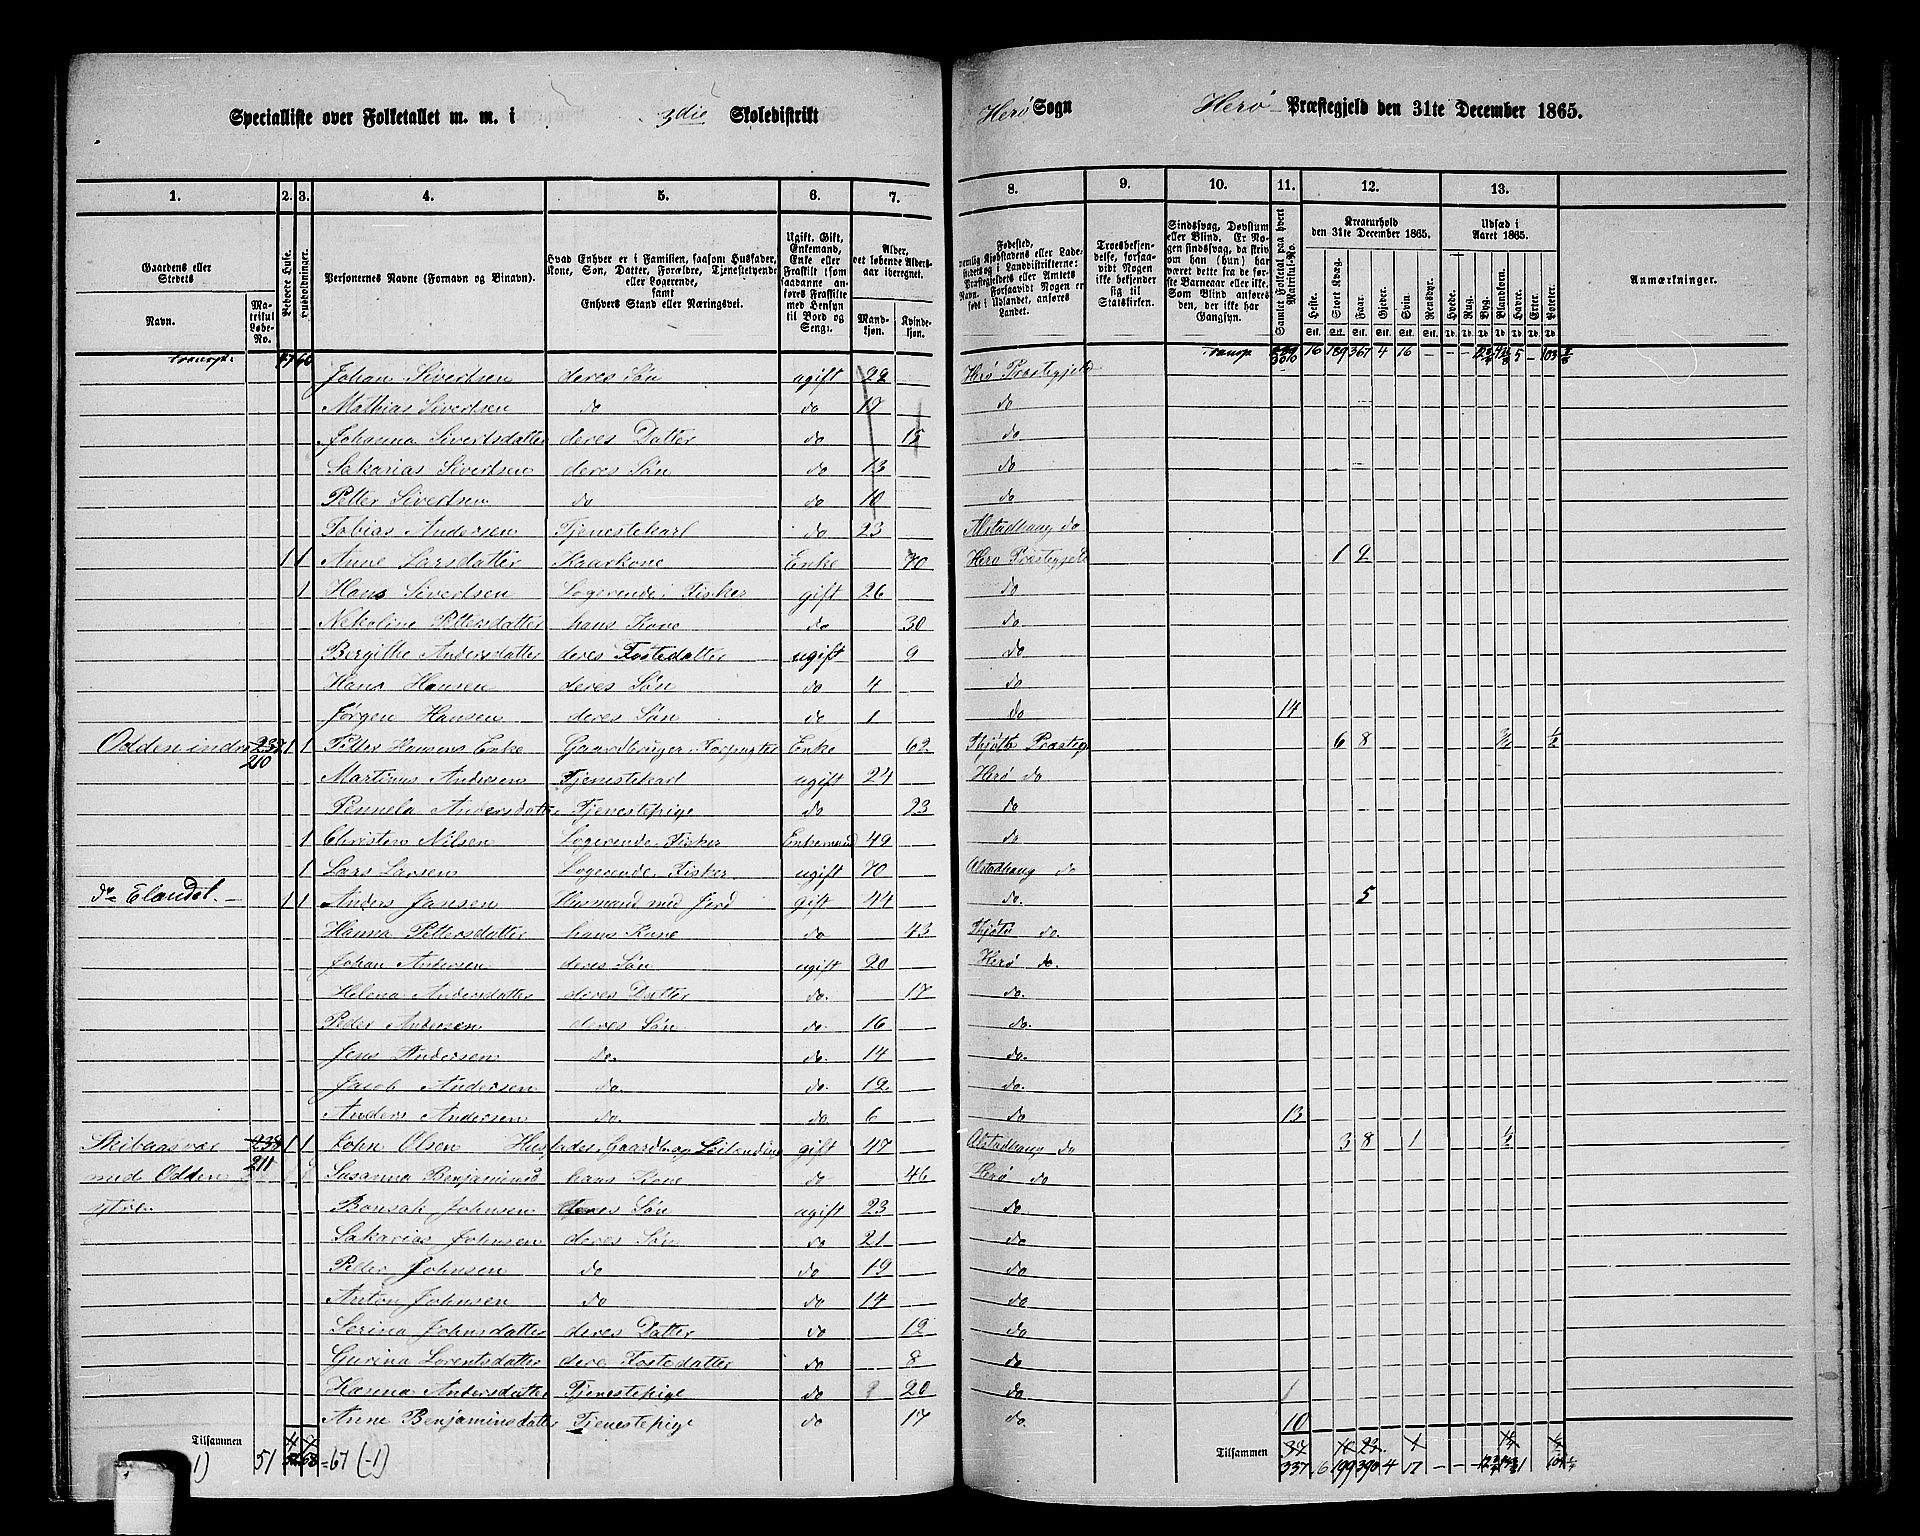 Specialliste over Folketallet m. m. i 3die Skoledistrikt Herø Sogn Herø Præstegjeld den 31te December 1865.
1. 2. 3. 4. 5. 6. 7. 8. 9. 10. 11. 12. 13.
Gaardens eller Stedets Navn. Matrikul Løbe-No. Beboede Huse. Husholdninger. Personernes Navne (Fornavn og Binavn). Hvad Enhver er i Familien, saasom Husfader, Kone, Søn, Datter, Forældre, Tjenestetyende eller Logerende, samt Enhvers Stand eller Næringsvei. Ugift, Gift, Enkemand, Enke eller Fraskilt (som saadanne anføres Fraskilte med Hensyn til Bord og Seng). Alder, det løbende Aldersaar iberegnet. Mandkjøn. Kvindekjøn.
Troesbekjendelse, forsaavidt Nogen ikke bekjender sig til Statskirken. Samlet Folketal paa hvert Matrikul-No. Kreaturhold den 31te December 1865. Heste. Stort Kvæg. Faar. Geder. Svin. Rensdyr. Udsæd i Aaret 1865. Hvede. Rug. Byg. Blandkorn. Havre. Erter. Poteter. Anmærkninger.
Johan Sivertsen deres Søn ugift 22 Herø Præstegjeld
Mathias Sivertsen do do 17 do
Johanna Sivertsdatter deres Datter do 15 do
Sakarias Sivertsen deres Søn do 13 do
Petter Sivertsen do do 10 do
Tobias Andersen Tjenestekarl do 23 Alstadhaug do
1 1 Anne Larsdatter Kaarkone Enke 70 Herø Præstegjeld 1 2
1 Hans Sivertsen Logerende, Fisker gift 26 do
Nekoline Pettersdatter hans Kone do 30 do
Bergitte Andersdatter deres Fostedatter ugift 9 do
Hans Hansen deres Søn do 4 do
Jørgen Hansen deres Søn do 1 do 14
Odden indre 237 210 1 1 Petter Hansens Enke Gaardbruger, Forpagter Enke 62 Thjøtto Præsteg 6 8 1/2
Martinus Andersen Tjenestekarl ugift 24 Herø do
Pernela Andersdatter Tjenestepige do 23 do
1 Christen Nilsen Logerende, Fisker Enkemand 49 do
1 Lars Larsen Logerende, Fisker ugift 70 Alstadhaug do
do Elandet. 1 1 Anders Jansen Husmand med Jord gift 44 do. 5
Hanna Pettersdatter hans Kone do 43 Thjøtto do.
Johan Andersen deres Søn ugift 20 Herø do.
Helena Andersdatter deres Datter do. 17 do.
Peder Andersen deres Søn do. 16 do.
Jens Andersen do. do. 14 do.
Jacob Andersen do. do. 12 do.
Anders Andersen do. do. 6 do 13
Skibaasvær 238 1 1 John Olsen Husfader, Gaardb og Leilænding gift 47 Alstadhaug do 3 8 1 1/2
211
med Odden Susanna Benjamins hans Kone do 46 Herø do
ytre. Bonsak Johnsen deres Søn ugift 23 do
Sakarias Johnsen deres Søn do 21 do
Peder Johnsen do do 19 do
Anton Johnsen do do 14 do
Serina Johnsdatter deres Datter do 12 do
Gurina Lorentsdatter deres Fostedatter do 8 do
Hanna Andersdatter Tjenestepige do 20 do
Anne Benjaminsdatter Tjenestepige do 17 do. 10
Tilsammen 4 Tilsammen 37 10 23 1
1) 51 =67 (-1) 337 16 199 390 4 17 - -